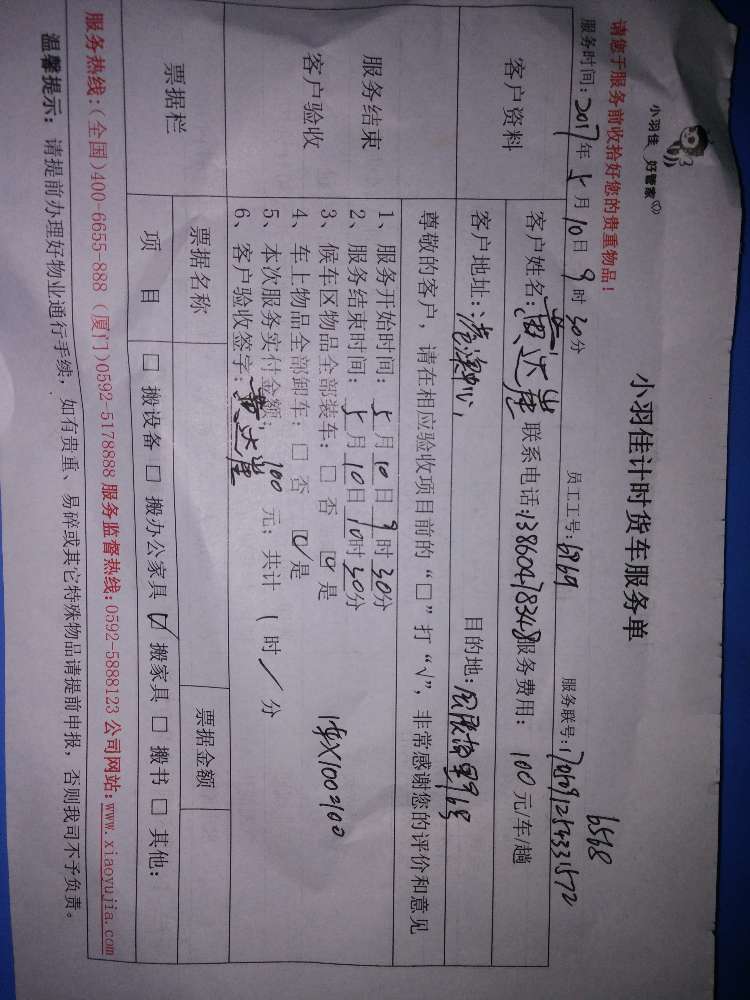 小羽佳 好管家
小羽佳计时货车服务单
6568
请您于服务前收拾好您的贵重物品！
服务时间：2017年5月10日9时30分 员工工号：6969 服务联号：
客户资料
客户姓名： 联系电话：13860478348 服务费用：100元/车/趟
客户地址： 目的地：
尊敬的客户，请在相应验收项目前的“□”打“√”，非常感谢您的评价和意见
服务结束
客户验收
1、服务开始时间：5月10日9时30分
2、服务结束时间：5月10日10时30分
3、候车区物品全部装车：□否 ☑是
4、车上物品全部卸车：□否 ☑是
5、本次服务实付金额：100元；共计1时/分
6、客户验收签字：
票据栏
票据名称 票据金额
项目 □搬设备 □搬办公家具 ☑搬家具 □搬书 □其他：
服务热线：（全国）400-6655-888（厦门）0592-5178888 服务监督热线：0592-5888123 公司网站：www.xiaoyujia.com
温馨提示：请提前办理好物业通行手续，如有贵重、易碎或其它特殊物品请提前申报，否则我司不予负责。